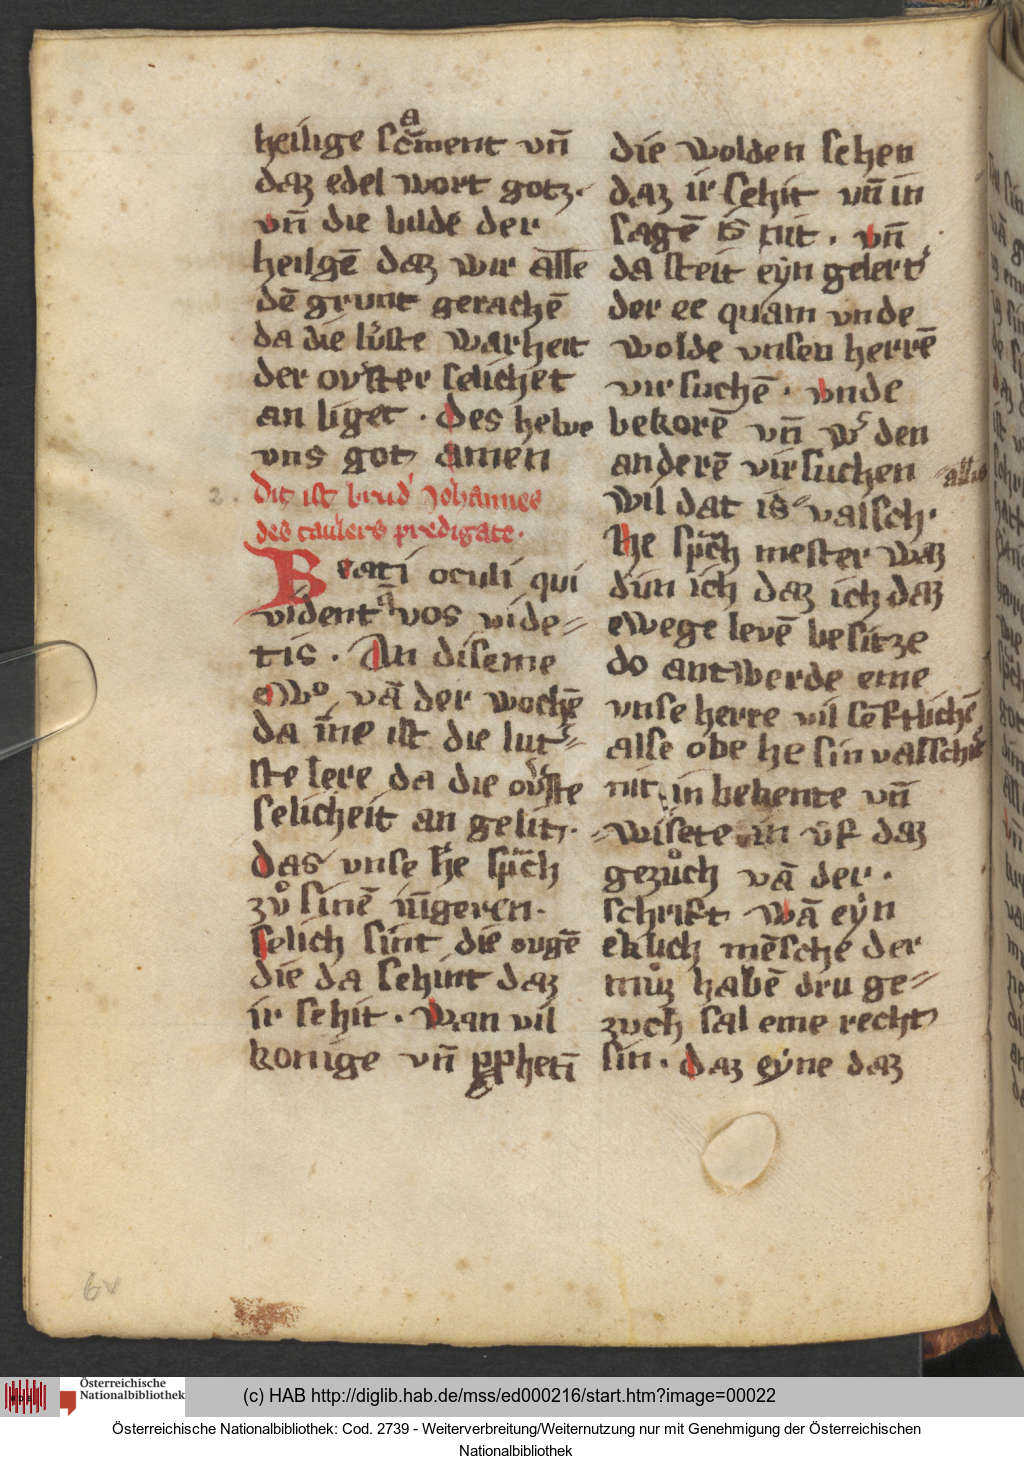 heilige scͣm̄ent vn̄
daz edel wort gotz.
vn̄ die bilde der
heilgē daz wir alse
dē grunt gerachē
da die luͤste warheit
der ouͤster selichet
an liget . des helue
vns got amen
2.
Dit ist brud' Johannes
des taulers predigate.
Beati oculi qui
vident qͣ vos vide=
tis . An diseme
ewͦ vā der wochē
da īne ist die lut=
ste lere da die ouͤste
selicheit an gelit.
das vnse h'e sp̄ch
zuͦ sinē iūgeren.
selich sint die ougē
die da sehint daz
ir sehit . wan vil
konige vn̄ ꝓphetī
die wolden sehen
daz ir sehit vn̄ in
sagē is nit . vn̄
da steit eyn gelert'
der ee quam vnde
wolde vnsen herrē
vir suchē . vnde
bekorē vn̄ w' den
anderē virsuchen
wil dat is valsch.
alse
He sp̄ch mester waz
dun ich daz ich daz
ewege levē besitze
do antwerde eme
vnse herre vil sēftlichē
alse obe he sin valscheit
nit in bekente vn̄
wisete in vf daz
gezuͦch vā der .
schrift wā eyn
eklich mēsche der
muͦz habē dru ge=
zuch sal eme recht
sin . daz eyne daz
6v
Österreichische
Nationalbibliothek
(c) HAB http://diglib.hab.de/mss/ed000216/start.htm?image=00022
Österreichische Nationalbibliothek: Cod. 2739 - Weiterverbreitung/Weiternutzung nur mit Genehmigung der Österreichischen
Nationalbibliothek